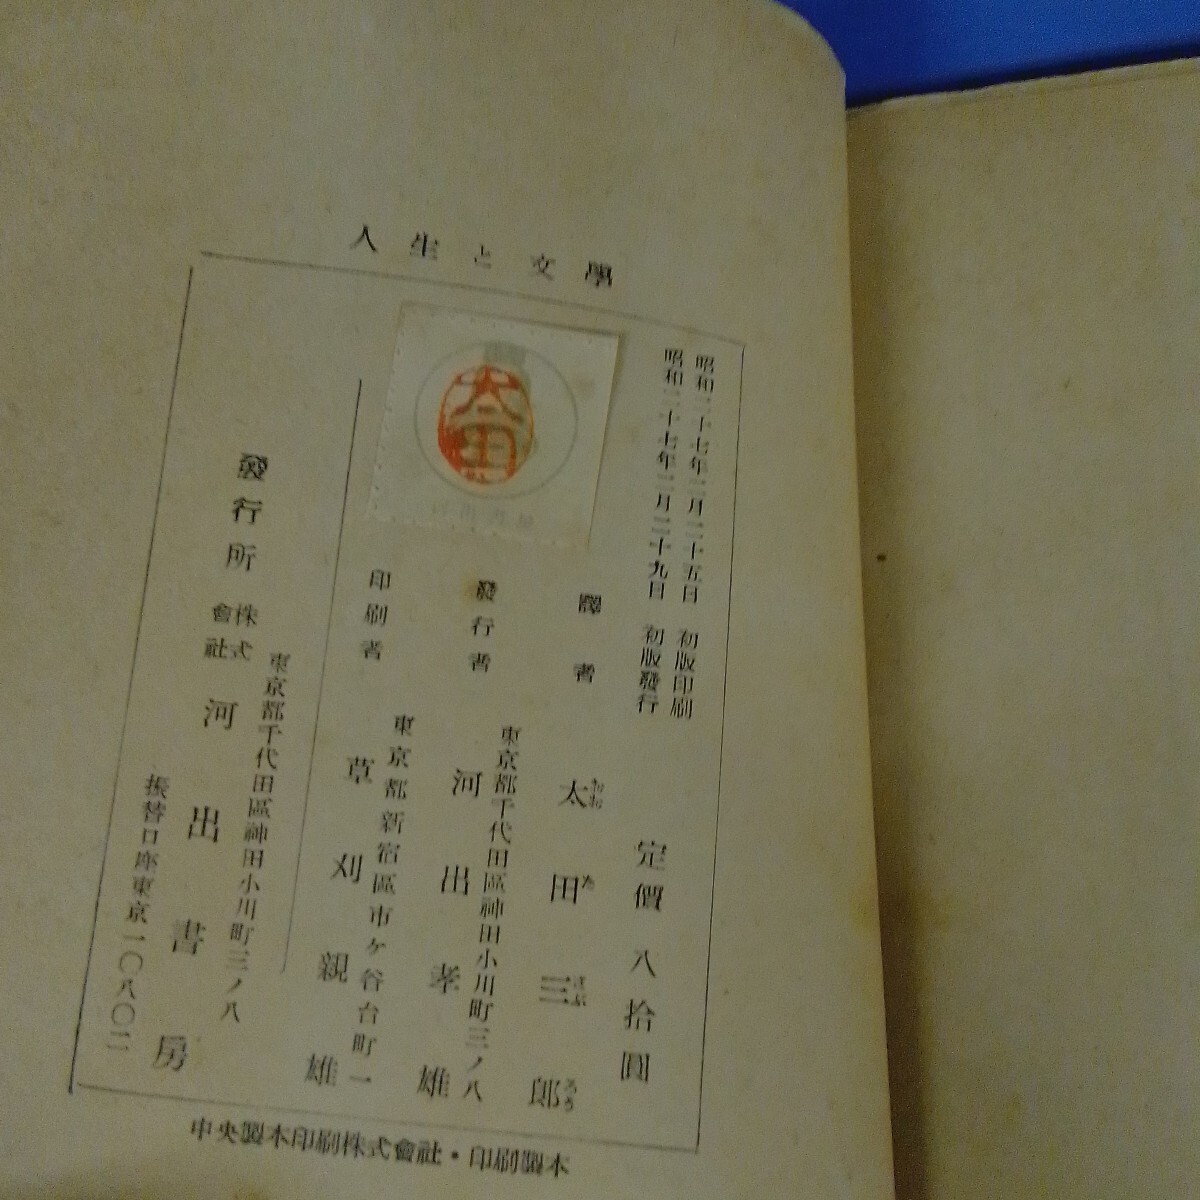 人生と文學
昭和二十七年二月二十五日 初版印刷
昭和二十七年二月二十九日 初版發行
定價 八拾圓
太田
譯者 太田三郎
おおたさぶろう
發行者 河出孝雄
東京都千代田區神田小川町三ノ八
印刷者 草刈親雄
東京都新宿區市ケ谷台町一
發行所 株式會社 河出書房
東京都千代田區神田小川町三ノ八
振替口座東京一〇八〇二
中央製本印刷株式會社・印刷製本